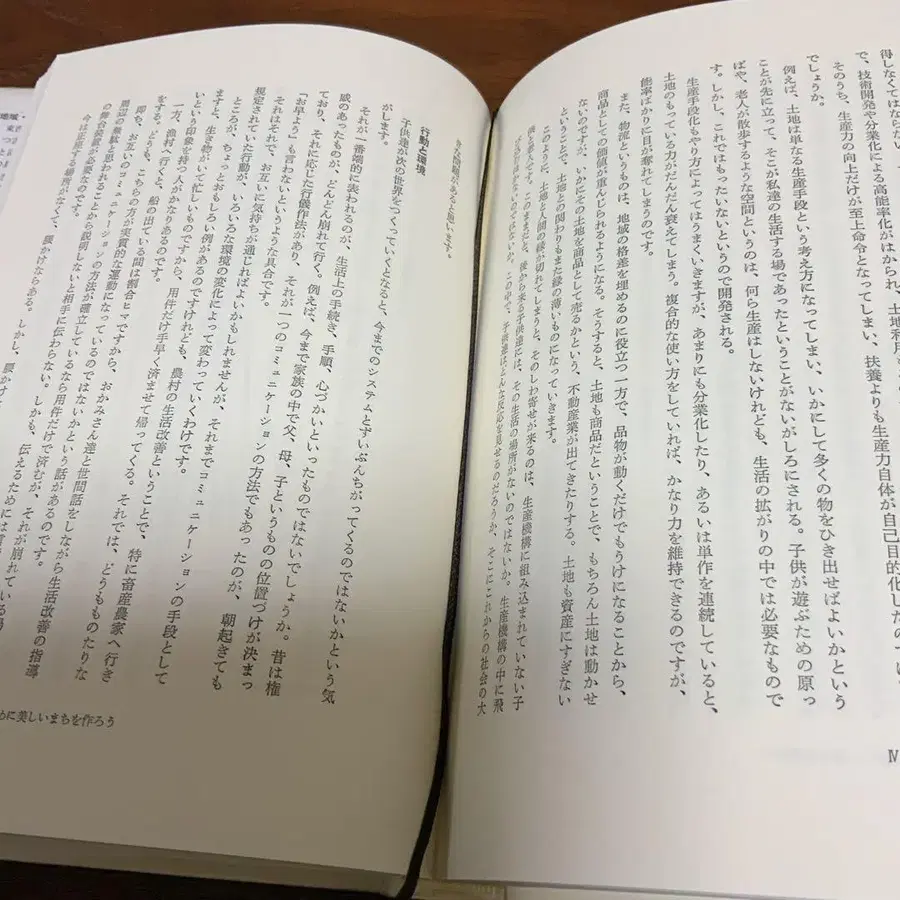 得しなくてはならない。
で、技術開発や分業化による高能率化がはかられ、土地利用
そのうち、生産力の向上だけが至上命令となってしまい、扶養よりも生産力自体が自己目的化したの
でしょうか。
例えば、土地は単なる生産手段という考え方になってしまい、いかにして多くの物をひき出せばよいかという
ことが先に立って、そこが私達の生活する場であったということがないがしろにされる。子供が遊ぶための原っ
ぱや、老人が散歩するような空間というのは、何ら生産はしないけれども、生活の拡がりの中では必要なもので
す。しかし、これではもったいないというので開発される。
生産手段化もやり方によってはうまくいきますが、あまりにも分業化したり、あるいは単作を連続していると、
土地のもっている力がだんだん衰えてしまう。複合的な使い方をしていれば、かなり力を維持できるのですが、
能率ばかりに目が奪れてしまうのです。
また、物流というものは、地域の格差を埋めるのに役立つ一方で、品物が動くだけでもうけになることから、
商品としての価値が重んじられるようになる。そうすると、土地も商品だということで、もちろん土地は動かせ
ないのですが、いかにその土地を商品として売るかという、不動産業が出てきたりする。土地も資産にすぎない
ということで、土地との関わりもまた縁の薄いものになっていきます。
このように、土地と人間の縁が切れてしまうと、そのしわ寄せが来るのは、生産機構に組み込まれていない子
供と老人です。このままだと、後から来る子供達には、その生活の場所がないのではないか。生産機構の中に飛
この中で、子供達はどんな反応を見せるのだろうか、そこにこれからの社会の大
きな問題があると思います。
行動と環境
子供達が次の世界をつくっていくとなると、今までのシステムとずいぶんちがってくるのではないかという気
がします。
それが一番端的に表われるのが、生活上の手続き、手順、心づかいといったものではないでしょうか。昔は権
威のあったものが、どんどん崩れて行く。例えば、今まで家族の中で父、母、子というものの位置づけが決まっ
ており、それに応じた行儀作法があり、それが一つのコミュニケーションの方法でもあったのが、朝起きても
「お早よう」も言わないというような具合です。
それはそれで、お互いに気持ちが通じればよいかもしれませんが、それまでコミュニケーションの手段として
規定されていた行動が、いろいろな環境の変化によって変わっていくわけです。
ところが、ちょっとおもしろい例があるのですけれども、農村の生活改善ということで、特に畜産農家へ行き
ますと、生き物がいて忙しいものですから、用件だけ手早く済ませて帰ってくる。それでは、どうもものたりな
いという印象を持つ人がかなりあるのです。
一方、漁村へ行くと、船の出ている間は割合ヒマですから、おかみさん達と世間話をしながら生活改善の指導
をする。どうも、こちらの方が実質的な運動になっているのではないかという話があるのです。
即ち、お互いのコミュニケーションの方法が確立しているなら用件だけで済むが、それが崩れている場
しかも、伝えるためには
の舞台装置が必要なのです。
めに美しいまちを作ろう
Ⅳ
地域・